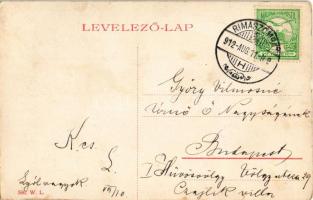 LEVELEZŐ-LAP
RIMASZOMBAT
912 AUG. 11
György Vilmosné
Urnő Ő Nagyságának
Budapest
I Hűvösvölgy Völgy utca 29
Csajlik villa
Kcs.
L.
VIII/10.
W. L.